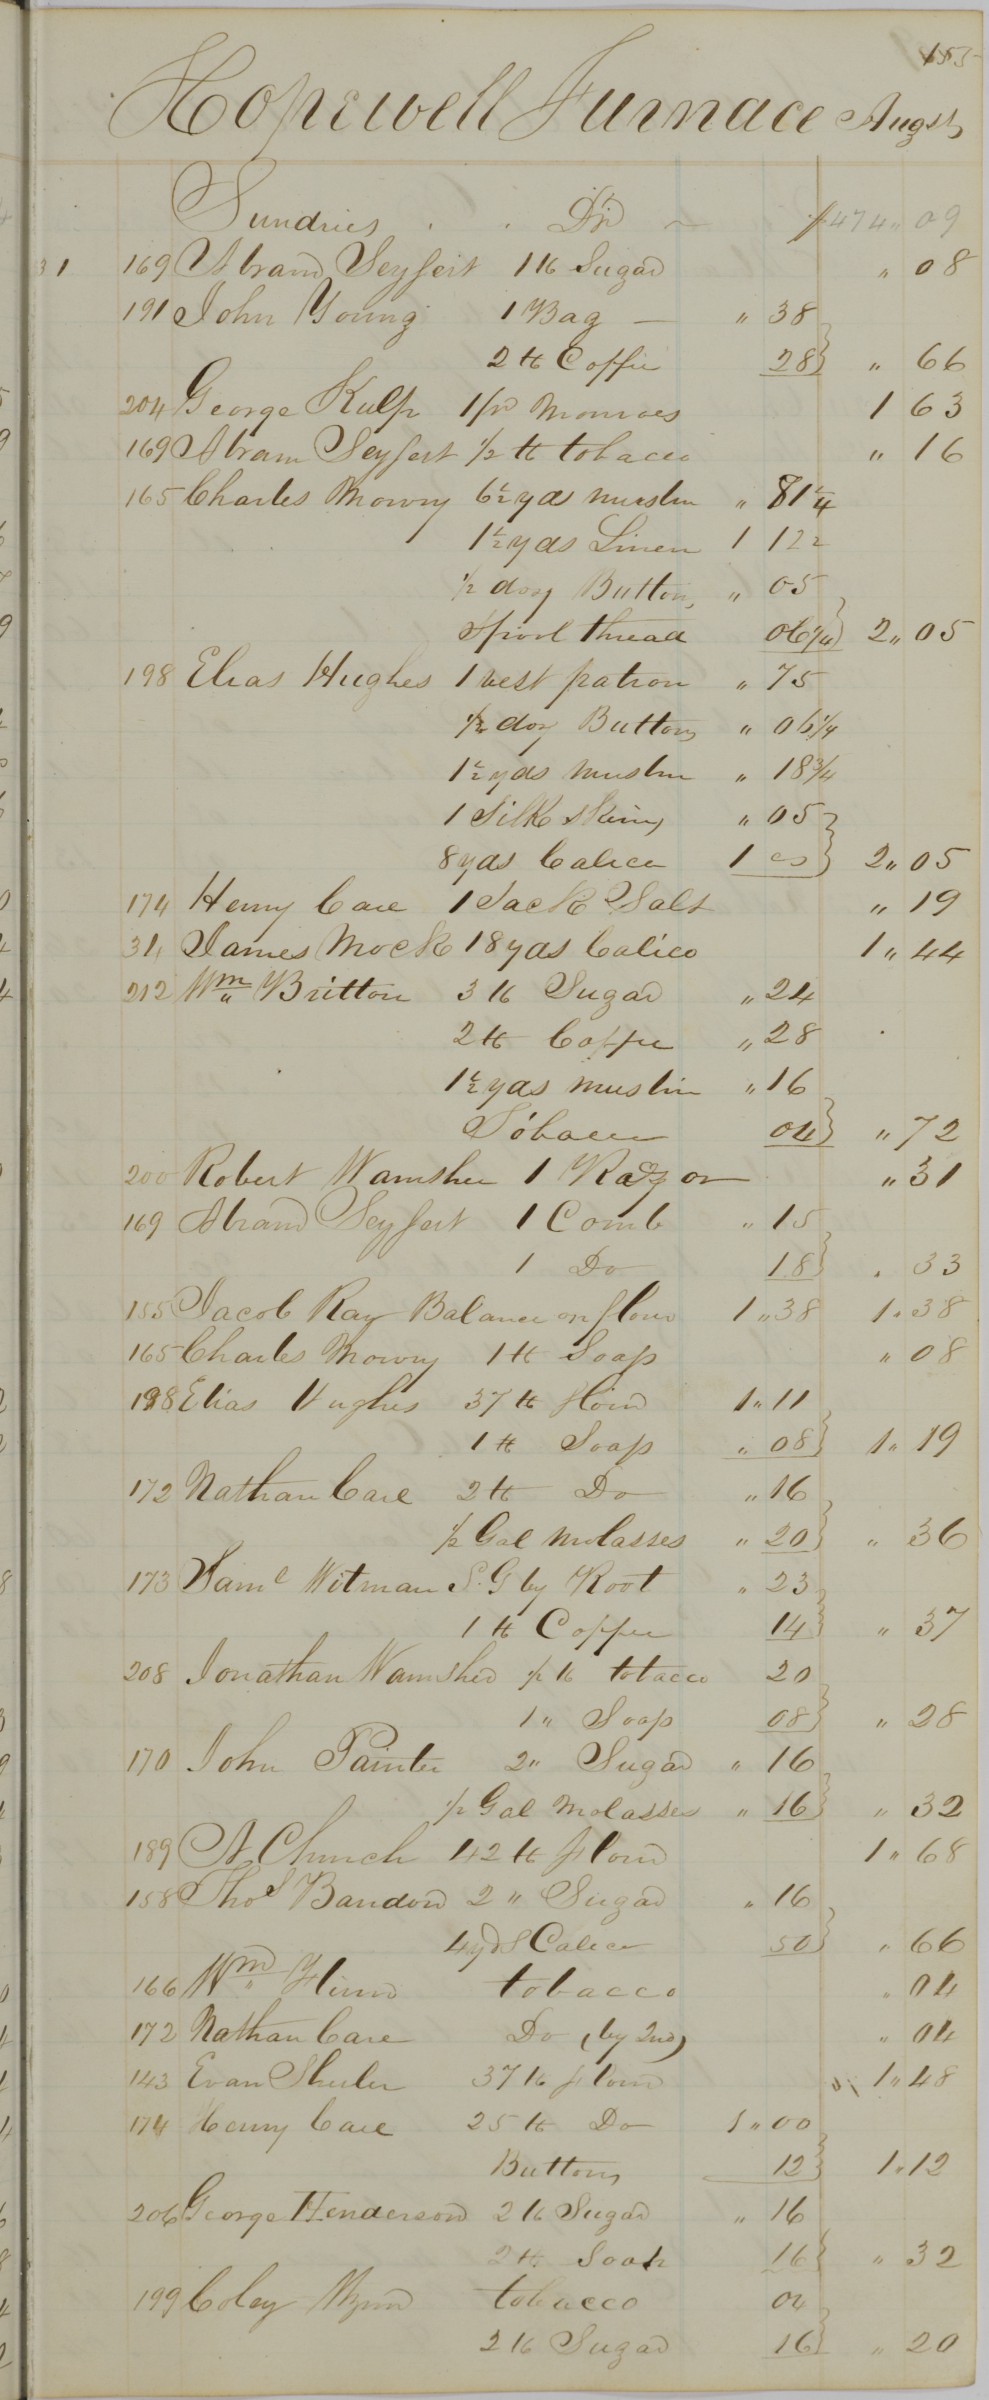 153
Hopewell Furnace Augst
Sundries . . Dr 474 " 09
31 169 Abram Seyfert 1 lb Sugar " 08
191 John Young 1 Bag — " 38
2 lb Coffee 28 } " 66
204 George Kulp 1 pr Monroes 1 63
169 Abram Seyfert 1/2 lb tobacco " 16
165 Charles Mowry 6 1/2 yds muslin " 81 1/4
1 1/2 yds Linen 1 12 1/2
1/2 doz Buttons " 05
Spool thread 06 1/4 } 2 " 05
198 Elias Hughes 1 vest patron " 75
1/2 doz Buttons " 06 1/4
1 1/2 yds muslin " 18 3/4
1 Silk skein " 05
8 yds Calico 1 00 } 2 " 05
174 Henry Care 1 Sack Salt " 19
31 James Mock 18 yds Calico 1 " 44
212 Wm Britton 3 lb Sugar " 24
2 lb Coffee " 28
1 1/2 yds muslin " 16
Tobacco 04 } " 72
200 Robert Wamsher 1 Razor " 31
169 Abram Seyfert 1 Comb " 15
1 Do 18 } " 33
155 Jacob Ray Balance on flour 1 " 38 1 " 38
165 Charles Mowry 1 lb Soap " 08
198 Elias Hughes 37 lb flour 1 " 11
1 lb Soap " 08 } 1 " 19
172 Nathan Care 2 lb Do " 16
1/2 Gal Molasses " 20 } " 36
173 Saml Witman S. G by Root " 23
1 lb Coffee 14 } " 37
208 Jonathan Wamsher 1/2 lb tobacco 20
1 " Soap 08 } " 28
170 John Painter 2 " Sugar " 16
1/2 Gal Molasses " 16 } " 32
189 A. Church 42 lb flour 1 " 68
158 Thos Bandon 2 " Sugar " 16
4 yds Calico 50 } " 66
166 Wm Flinn tobacco " 04
172 Nathan Care Do (by 2nd) " 04
143 Evan Shuler 37 lb flour 1 " 48
174 Henry Care 25 lb Do 1 " 00
Buttons 12 } 1 " 12
206 George Henderson 2 lb Sugar " 16
2 lb Soap 16 } " 32
199 Coley Wynn tobacco 04
2 lb Sugar 16 } " 20